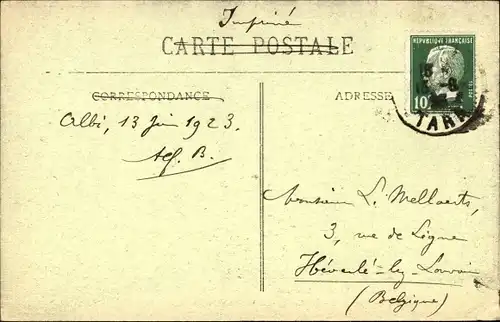 Imprimé
CARTE POSTALE
CORRESPONDANCE
ADRESSE
REPUBLIQUE FRANÇAISE
10
POSTES
TARN
Albi, 13 Juin 1923.
Alf. B.
Monsieur L. Mellaerts,
3, rue de Ligne
Héverlé-lez-Louvain
(Belgique)